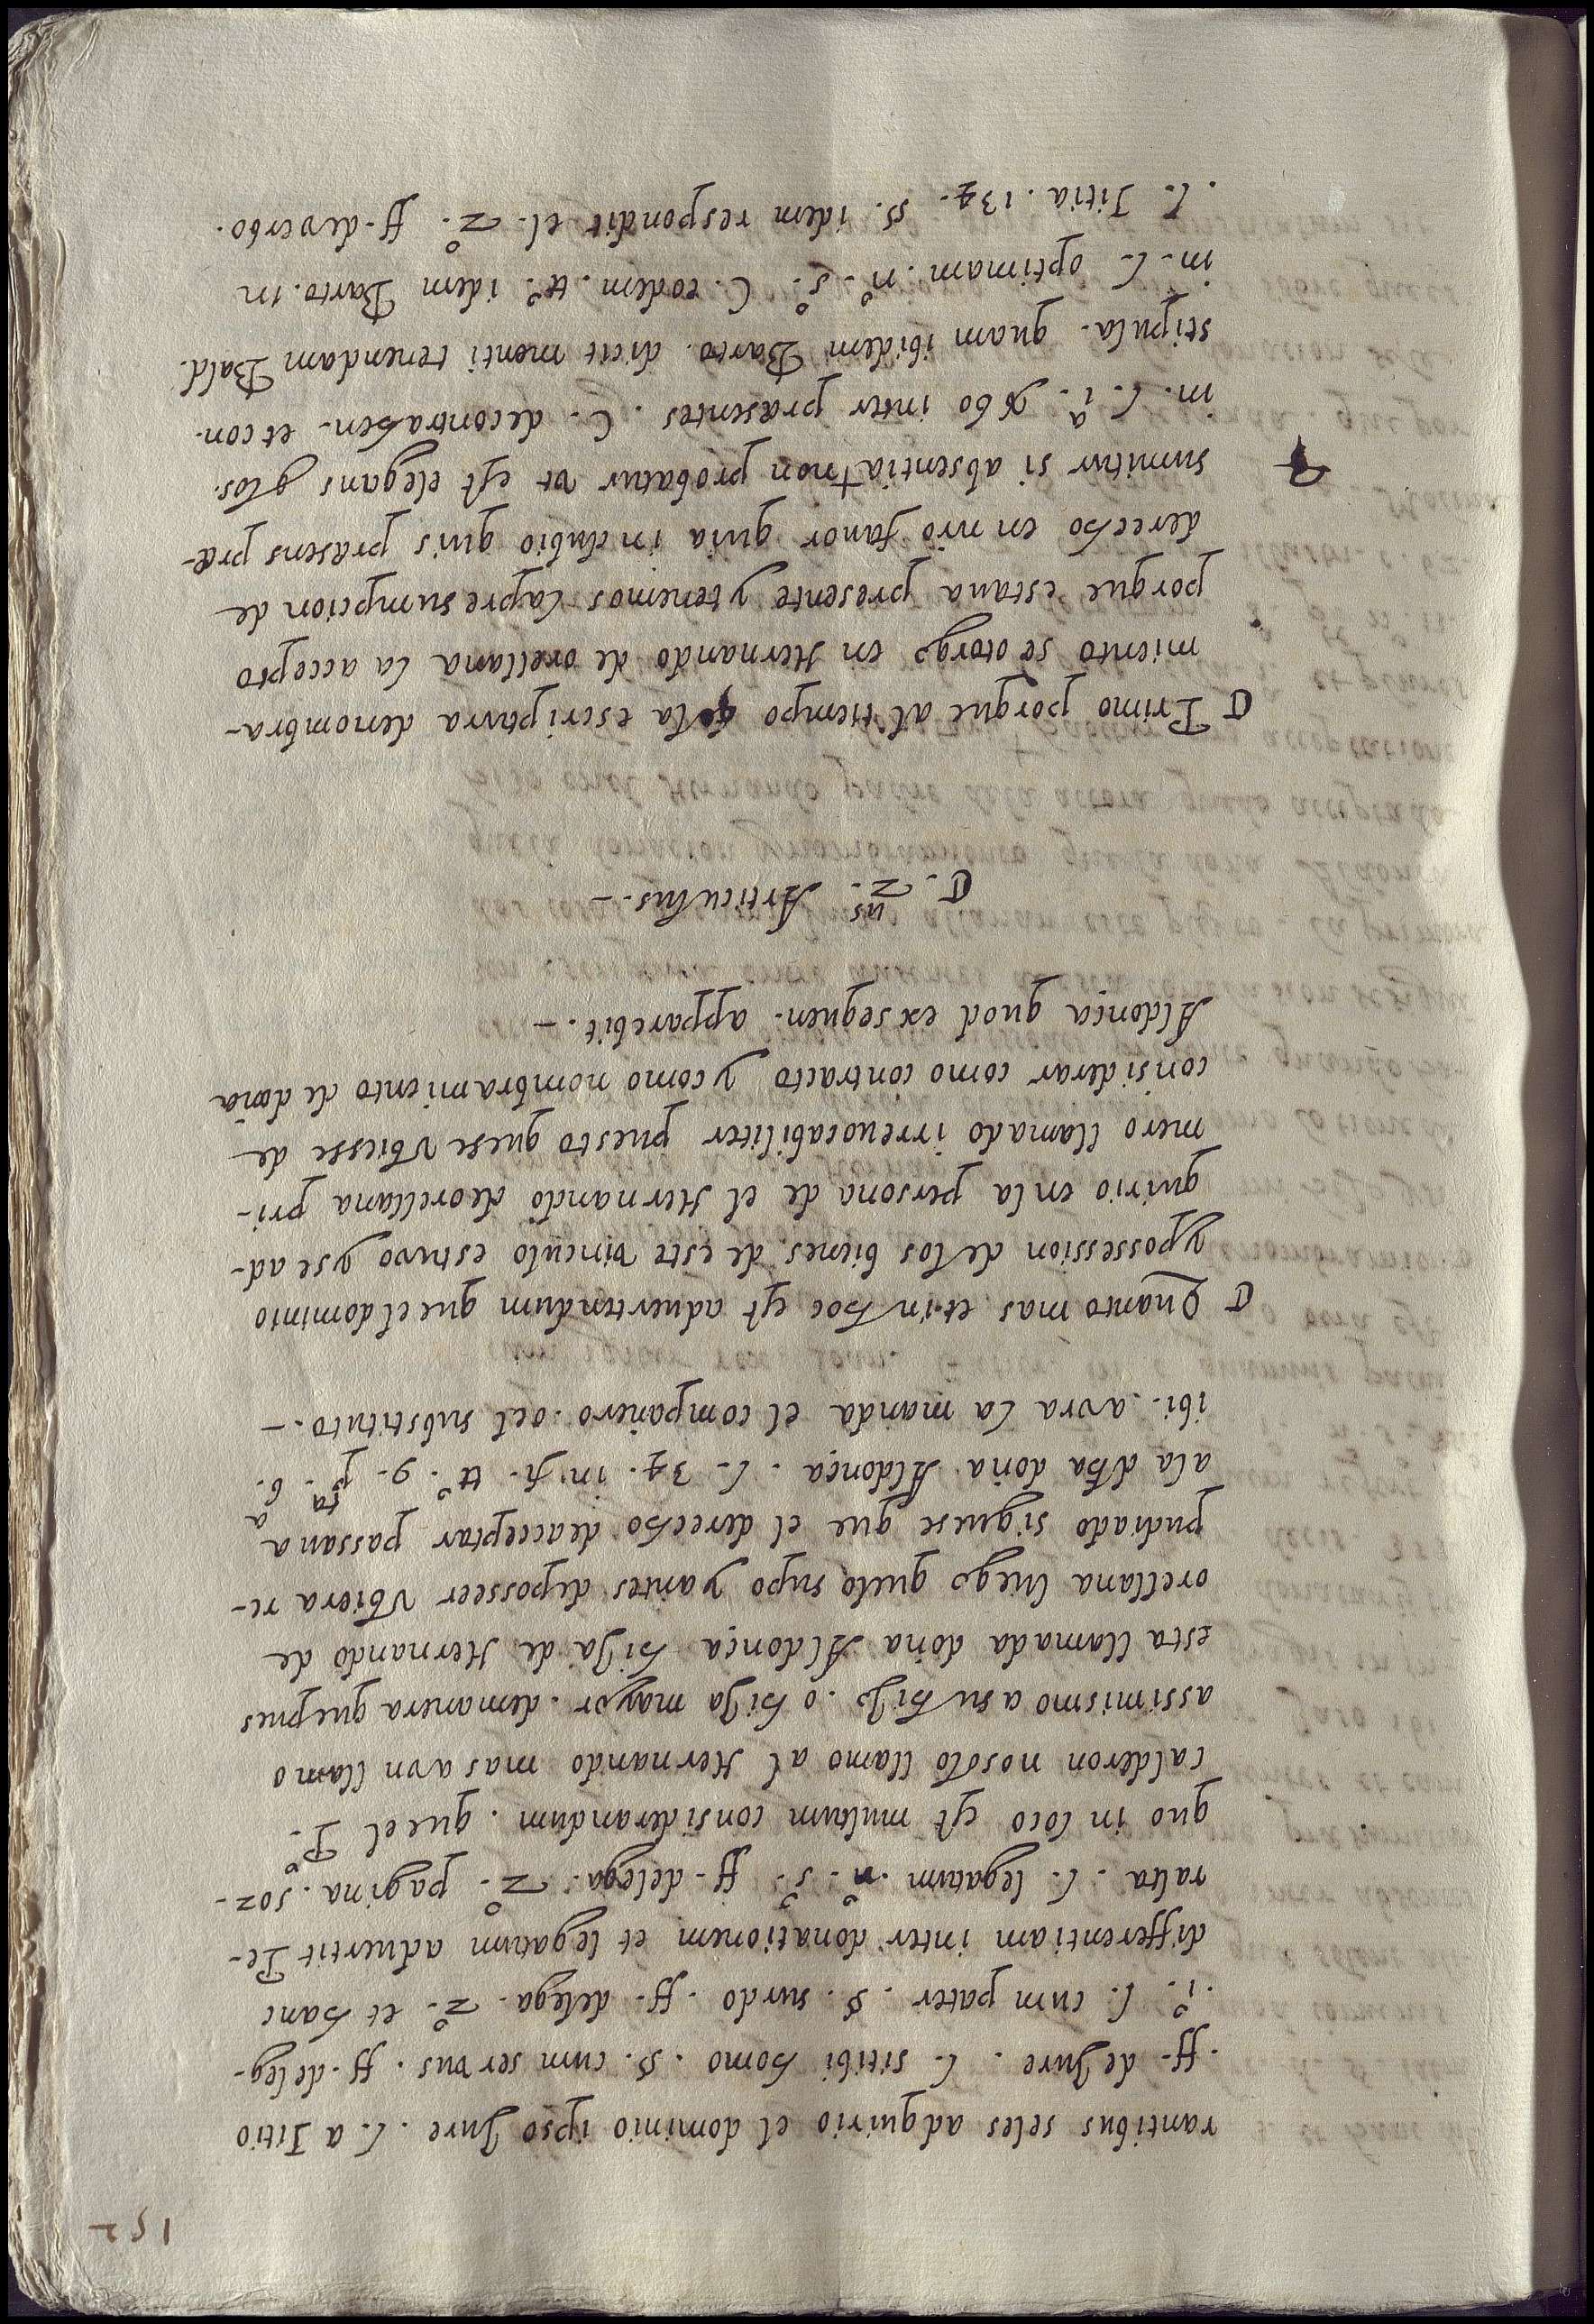 152
rantibus seles adquirio el dominio ipso Jure. l. a Titio
.ff. de Jure. l. si tibi homo. §. cum servus. ff. de leg-
.i.º l. cum pater. §. surdo. ff. de lega. 2.º et hanc
differentiam inter donationem et legatum aduertit Pe-
ralta. l. legatum. n.º 5.º ff. de lega. 2.º pagina. 502-
quo in loco est multum considerandum. que el P.º
calderon no solo llamo al Hernando mas avn llamo
assimismo a su hijo. o hija mayor. demanera que pues
esta llamada doña Aldonça hija de Hernando de
orellana luego que lo supo y antes de posseer vbiera re-
pudiado siguese que el derecho de acceptar passaua
a la dha doña Aldonça. l. 34. in fi. tt.º 9. p.ta 6.a
ibi. avra la manda el compañero. o el substituto.-
¶ Quanto mas et in hoc est aduertendum que el dominio
y possession de los bienes de este vinculo estuvo y se ad-
quirio en la persona de el Hernando de orellana pri-
mero llamado irreuocabiliter puesto que se vbiesse de
considerar como contracto y como nombramiento de doña
Aldonça quod ex sequen. apparebit.-
¶. 2.us Articulus.-
¶ Primo porque al tiempo q la escriptura de nombra-
miento se otorgo en Hernando de orellana la accepto
porque estaua presente y tenemos la presumpcion de
derecho en nro fauor quia in dubio quis præsens præ-
sumitur si absentia + non probatur vt est elegans glos.
in. l. i.a vbo inter præsentes. C. de contrahen. et con-
stipula. quam ibidem Barto. dicit menti tenendam Bald.
in. l. optimam. n.º 5.º C. eodem. tt.º idem Barto. in
.l. Titia. 134. §. idem respondit el. 2.º ff. de verbo.